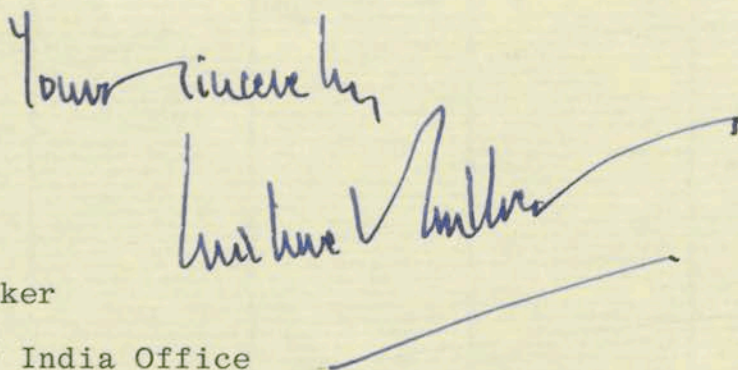 Yours sincerely,
Michael
ker
India Office